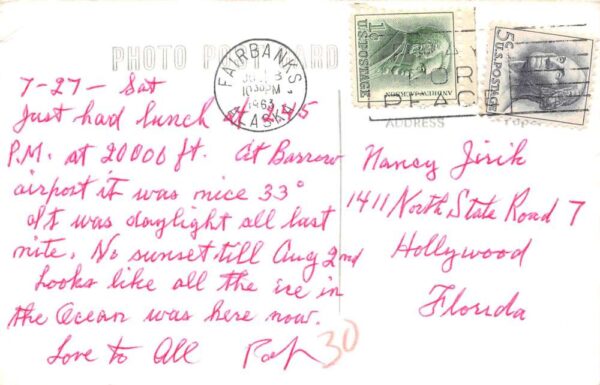 PHOTO POSTCARD
FAIRBANKS,
10 30 PM
1963
ALASKA
1¢
U.S. POSTAGE
ANDREW JACKSON
5¢
U.S. POSTAGE
PRAY
FOR
PEACE
ADDRESS
7-27- Sat
Just had lunch at 2:45
P.M. at 20000 ft. At Barrow
airport it was nice 33°
It was daylight all last
nite. No sunset till Aug 2nd
Looks like all the ice in
the Ocean was here now.
Love to All
30
Nancy Jirik
1411 North State Road 7
Hollywood
Florida